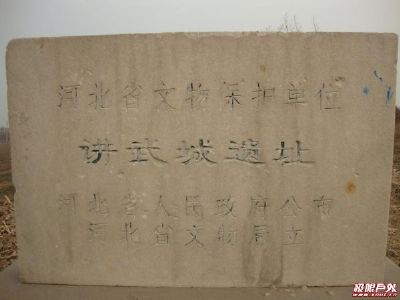 河北省文物保护单位
讲武城遗址
河北省人民政府公布
河北省文物局立
极限户外